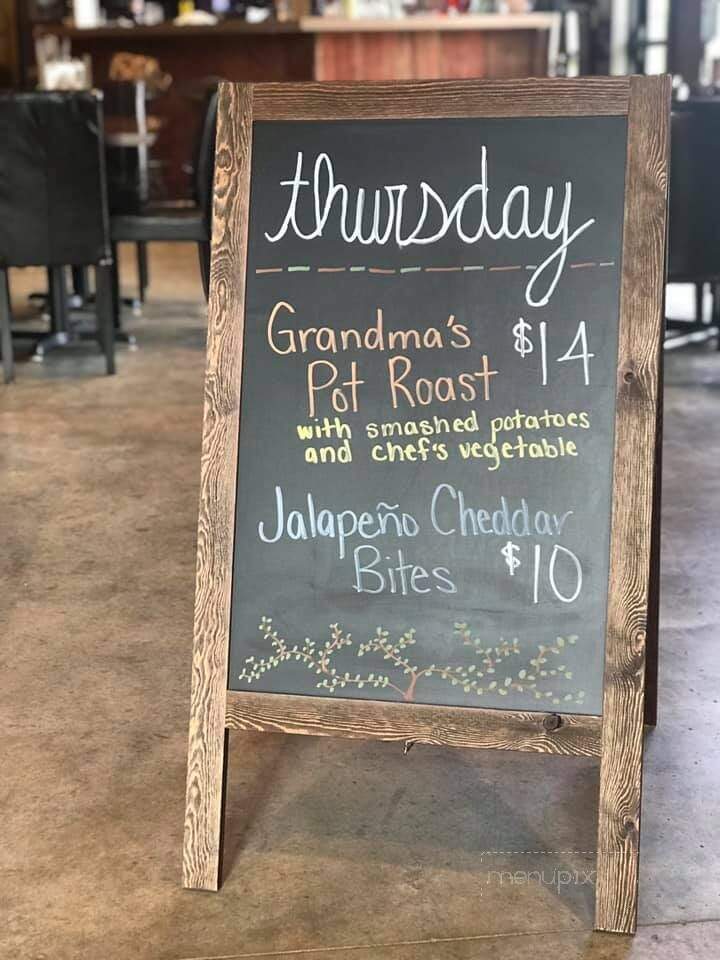 thursday
Grandma's $14
Pot Roast
with smashed potatoes
and chef's vegetable
Jalapeño Cheddar
Bites $10
menupix